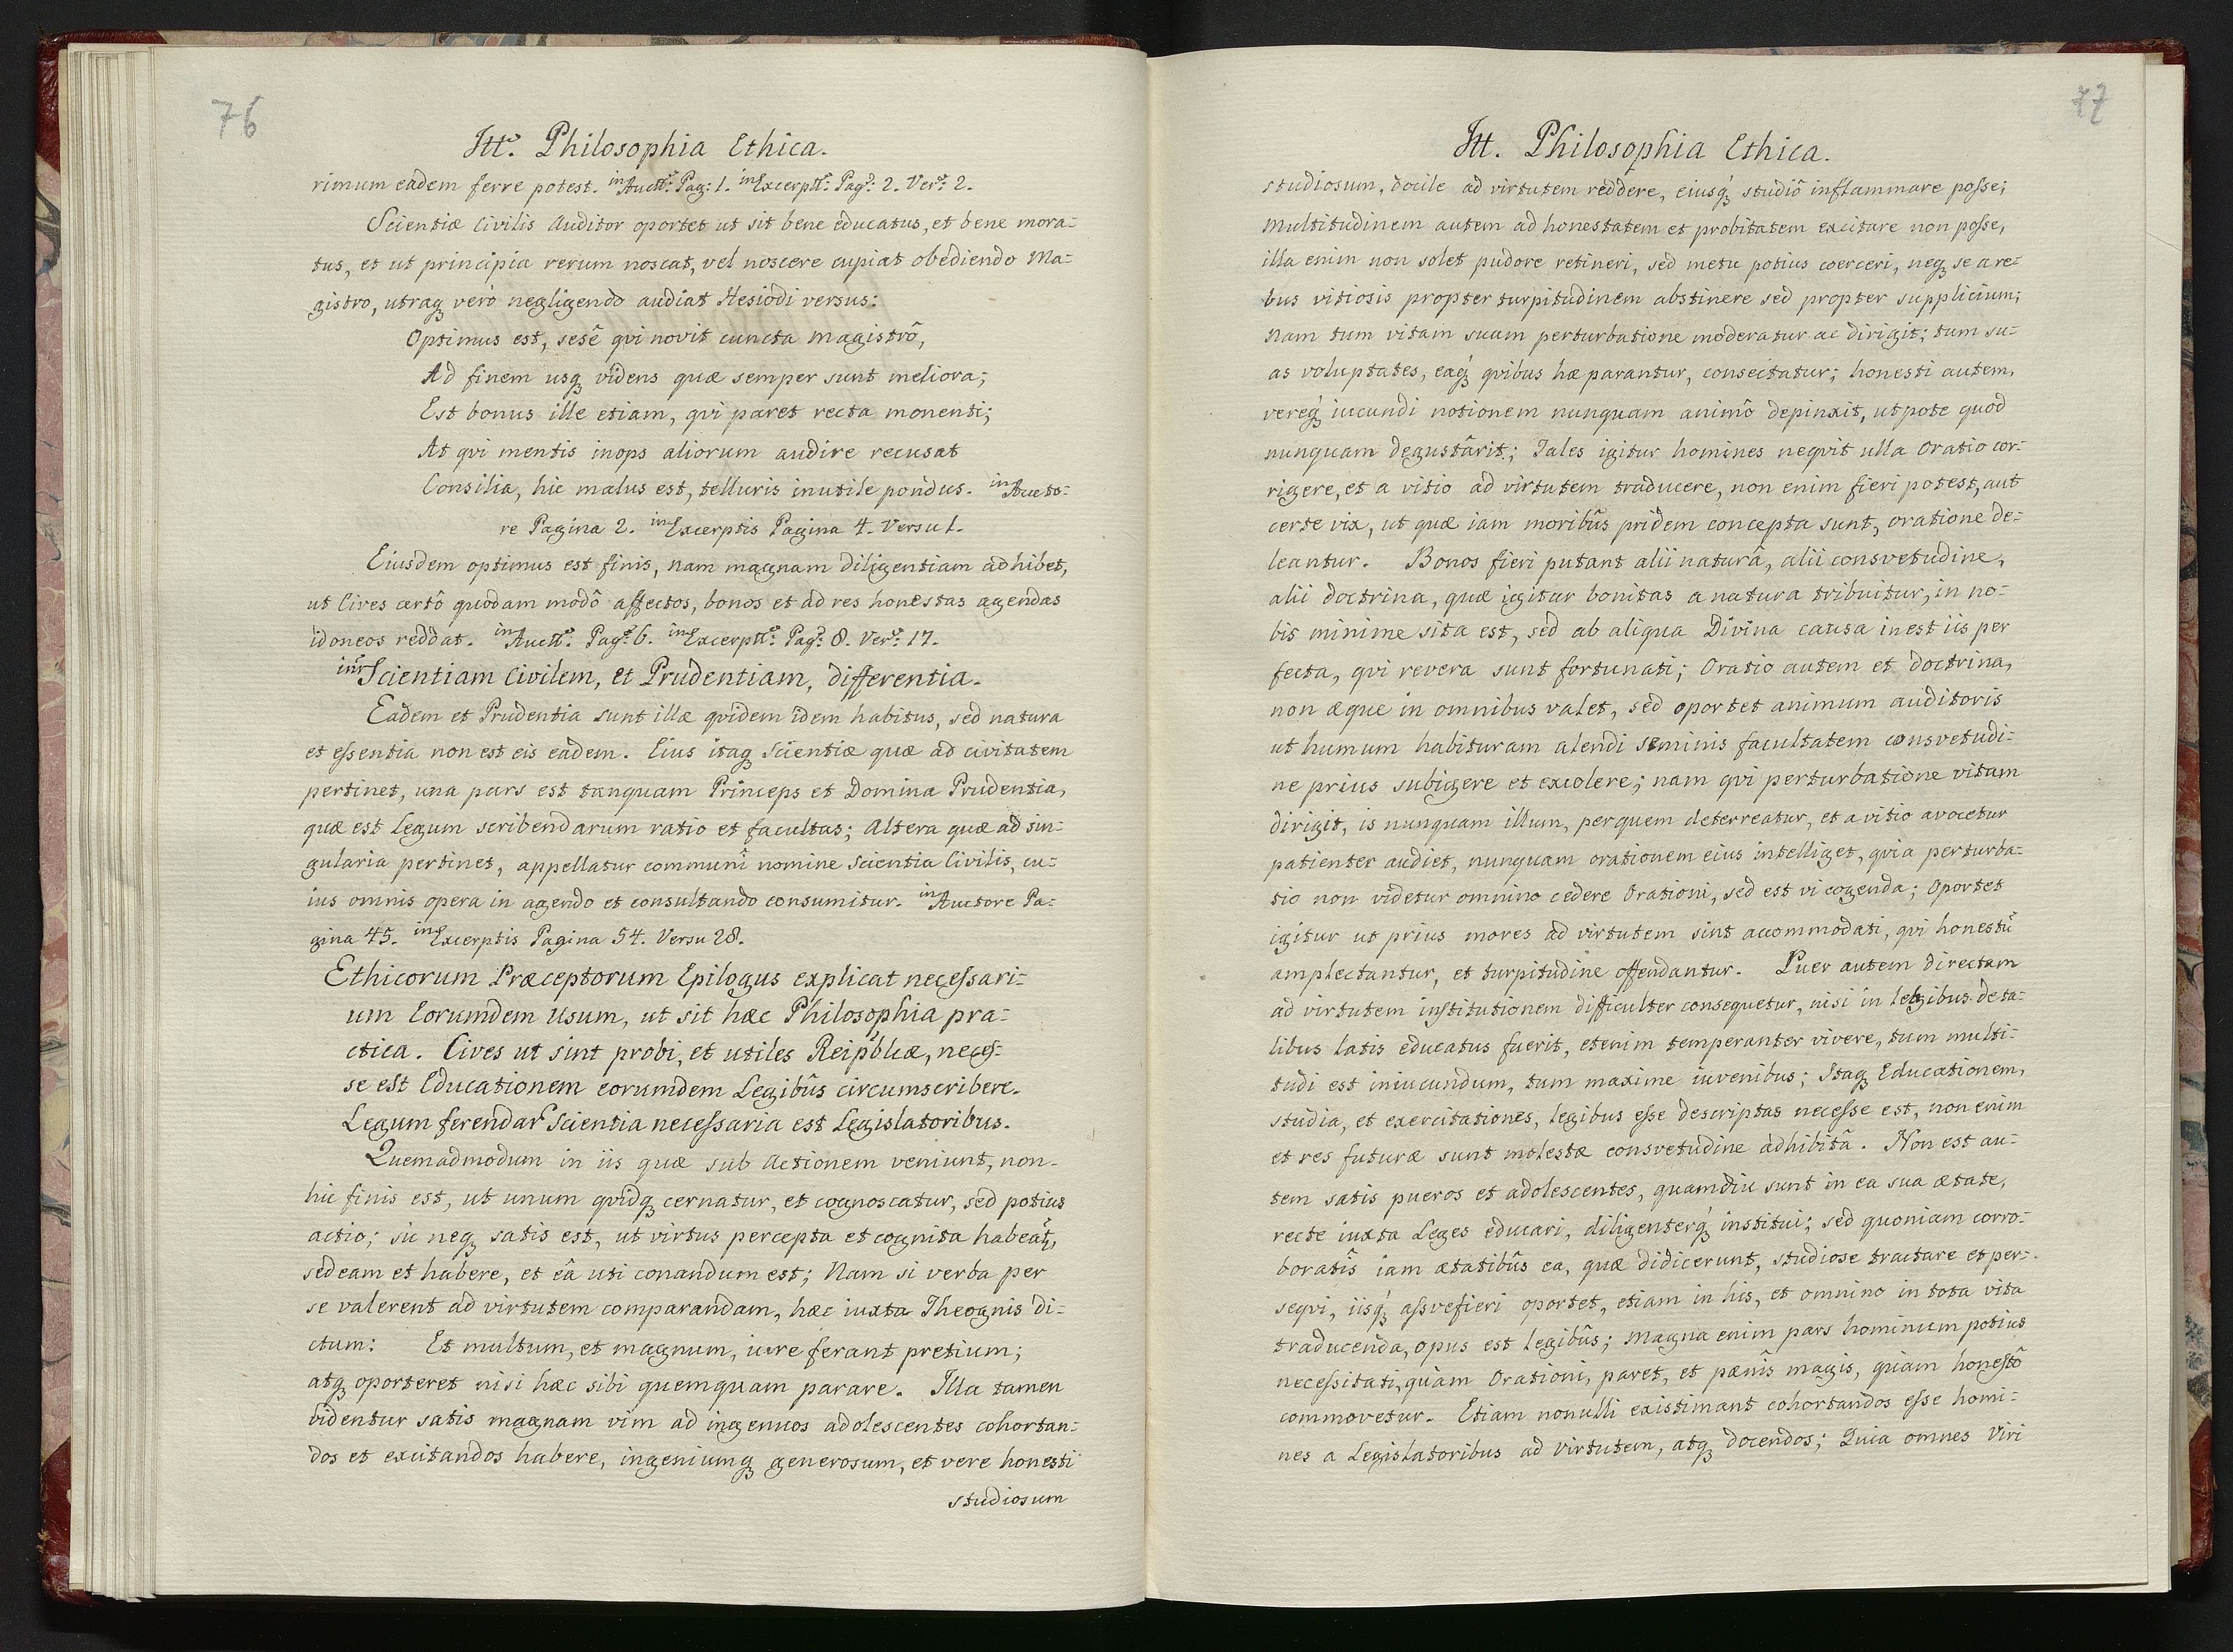 76
Ittᵒ. Philosophia Ethica.
rimum eadem ferre potest. in Auctᵉ: Pag: 1. in Excerptᵗˢ: Pagᵃ: 2. Verˢ: 2.
Scientiæ Civilis Auditor oportet ut sit bene educatus, et bene mora-
tus, et ut principia rerum noscat, vel noscere cupiat obediendo Ma-
gistro, utraqȝ verò negligendo audiat Hesiodi versus:
Optimus est, sesê qvi novit cuncta magistrô,
Ad finem usqȝ videns quæ semper sunt meliora;
Est bonus ille etiam, qvi paret recta monenti;
At qvi mentis inops aliorum audire recusat
Consilia, hic malus est, telluris inutile pondus. in Aucto-
re Pagina 2. in Excerptis Pagina 4. Versu 1.
Eiusdem optimus est finis, nam magnam diligentiam adhibet,
ut Cives certô quodam modô affectos, bonos et ad res honestas agendas
idoneos reddat. in Auctᵉ: Pagᵃ: 6. in Excerptᵗˢ: Pagᵃ: 8. Verˢ: 17.
intr̃ Scientiam Civilem, et Prudentiam, differentia.
Eadem et Prudentia sunt illæ qvidem idem habitus, sed natura
et essentia non est eis eadem. Eius itaqȝ Scientiæ quæ ad civitatem
pertinet, una pars est tanquam Princeps et Domina Prudentia,
quæ est Legum scribendarum ratio et facultas; Altera quæ ad sin-
gularia pertinet, appellatur communi nomine Scientia Civilis, cu-
ius omnis opera in agendo et consultando consumitur. in Auctore Pa-
gina 45. in Excerptis Pagina 54. Versu 28.
Ethicorum Præceptorum Epilogus explicat necessari-
um Eorumdem Usum, ut sit hæc Philosophia pra-
ctica. Cives ut sint probi, et utiles Reipb̃licæ, neces-
se est Educationem eorumdem Legibûs circumscribere.
Legum ferendar̃ Scientia necessaria est Legislatoribus.
Quemadmodum in iis quæ sub Actionem veniunt, non
hic finis est, ut unum qvidqȝ cernatur, et cognoscatur, sed potius
actio; sic neqȝ satis est, ut virtus percepta et cognita habeat̃,
sed eam et habere, et eâ uti conandum est; Nam si verba per
se valerent ad virtutem comparandam, hæc iuxta Theognis di-
ctum: Et multum, et magnum, iure ferant pretium;
atqȝ oporteret nisi hæc sibi quemquam parare. Illa tamen
videntur satis magnam vim ad ingenuos adolescentes cohortan-
dos et excitandos habere, ingeniumqȝ generosum, et vere honesti
studiosum
77
Itt. Philosophia Ethica.
studiosum, docile ad virtutem reddere, eiusqȝ́ studiô inflammare posse;
Multitudinem autem ad honestatem et probitatem excitare non posse,
illa enim non solet pudore retineri, sed metu potius coerceri, neqȝ se a re-
bus vitiosis propter turpitudinem abstinere sed propter supplicium;
Nam tum vitam suam perturbatione moderatur ac dirigit; tum su-
as voluptates, eaqȝ́ qvibus hæ parantur, consectatur; honesti autem,
vereqȝ́ iucundi notionem nunquam animô depinxit, utpote quod
nunquam degustârit; Tales igitur homines neqvit ulla Oratio cor-
rigere, et a vitio ad virtutem traducere, non enim fieri potest, aut
certe vix, ut quæ iam moribûs pridem concepta sunt, oratione de-
leantur. Bonos fieri putant alii naturâ, alii consvetudine,
alii doctrina, quæ igitur bonitas a natura tribuitur, in no-
bis minime sita est, sed ab aliqua Divina causa inest iis per
fecta, qvi revera sunt fortunati; Oratio autem et doctrina,
non æque in omnibus valet, sed oportet animum auditoris
ut humum habituram alendi seminis facultatem consvetudi-
ne prius subigere et excolere; nam qvi perturbatione vitam
dirigit, is nunquam illum, per quem deterreatur, et a vitio avocetur
patienter audiet, nunquam orationem eius intelliget, qvia perturba-
tio non videtur omnino cedere Orationi, sed est vi cogenda; Oportet
igitur ut prius mores ad virtutem sint accommodati, qvi honestũ
amplectantur, et turpitudine offendantur. Puer autem directam
ad virtutem institutionem difficulter conseqvetur, nisi in legibus de ta-
libus latis educatus fuerit, etenim temperanter vivere, tum multi-
tudi est iniucundum, tum maxime iuvenibus; Itaqȝ Educationem,
studia, et exercitationes, legibus esse descriptas necesse est, non enim
et res futuræ sunt molestæ consvetudine adhibitâ. Non est au-
tem satis pueros et adolescentes, quamdiu sunt in ea sua ætate,
recte iuxta Leges educari, diligenterqȝ́ institui; sed quoniam corro-
boratîs iam ætatibûs ea, quæ didicerunt, studiose tractare et per-
seqvi, iisqȝ́ assvefieri oportet, etiam in his, et omnino in tota vita
traducenda, opus est legibûs; Magna enim pars hominum potius
necessitati, quàm Orationi, paret, et pænîs magis, quàm honestô
commovetur. Etiam nonulli existimant cohortandos esse homi-
nes a Legislatoribus ad virtutem, atqȝ docendos; Quia omnes Viri